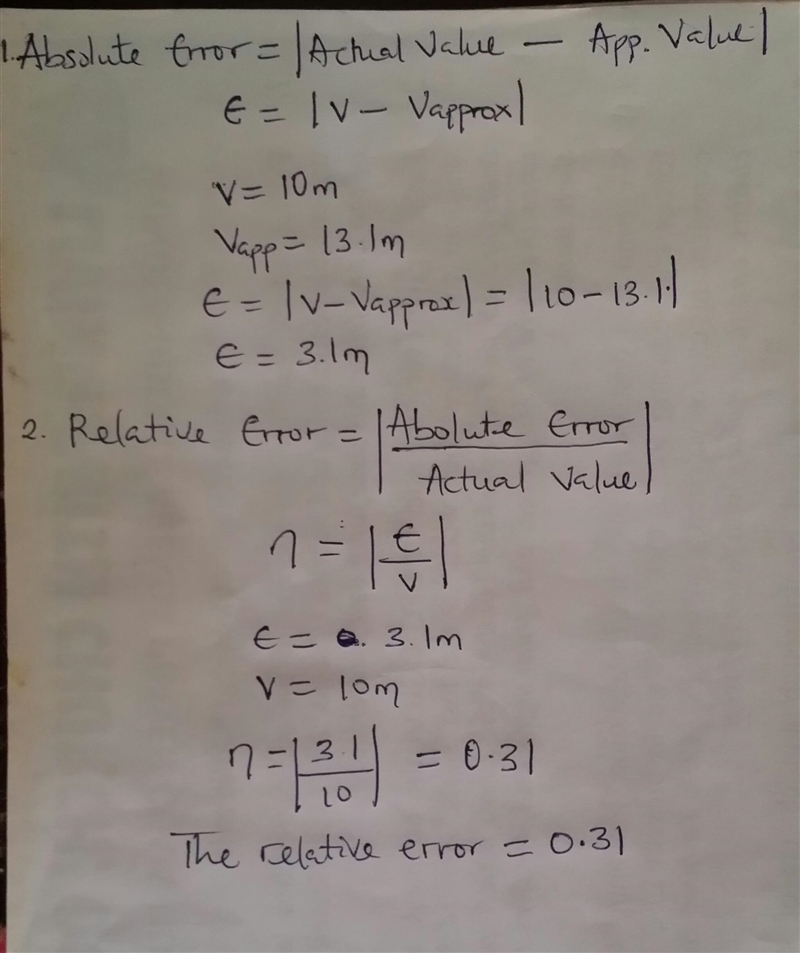 1. Absolute Error = |Actual Value — App. Value|
ϵ = |V — Vapprox|
V = 10m
Vapp = 13.1m
ϵ = |V – Vapprox| = |10 – 13.1|
ϵ = 3.1m
2. Relative Error = |Abolute Error
Actual Value|
η = |ϵ
V|
ϵ = 3.1m
V = 10m
η = |3.1
10| = 0.31
The relative error = 0.31